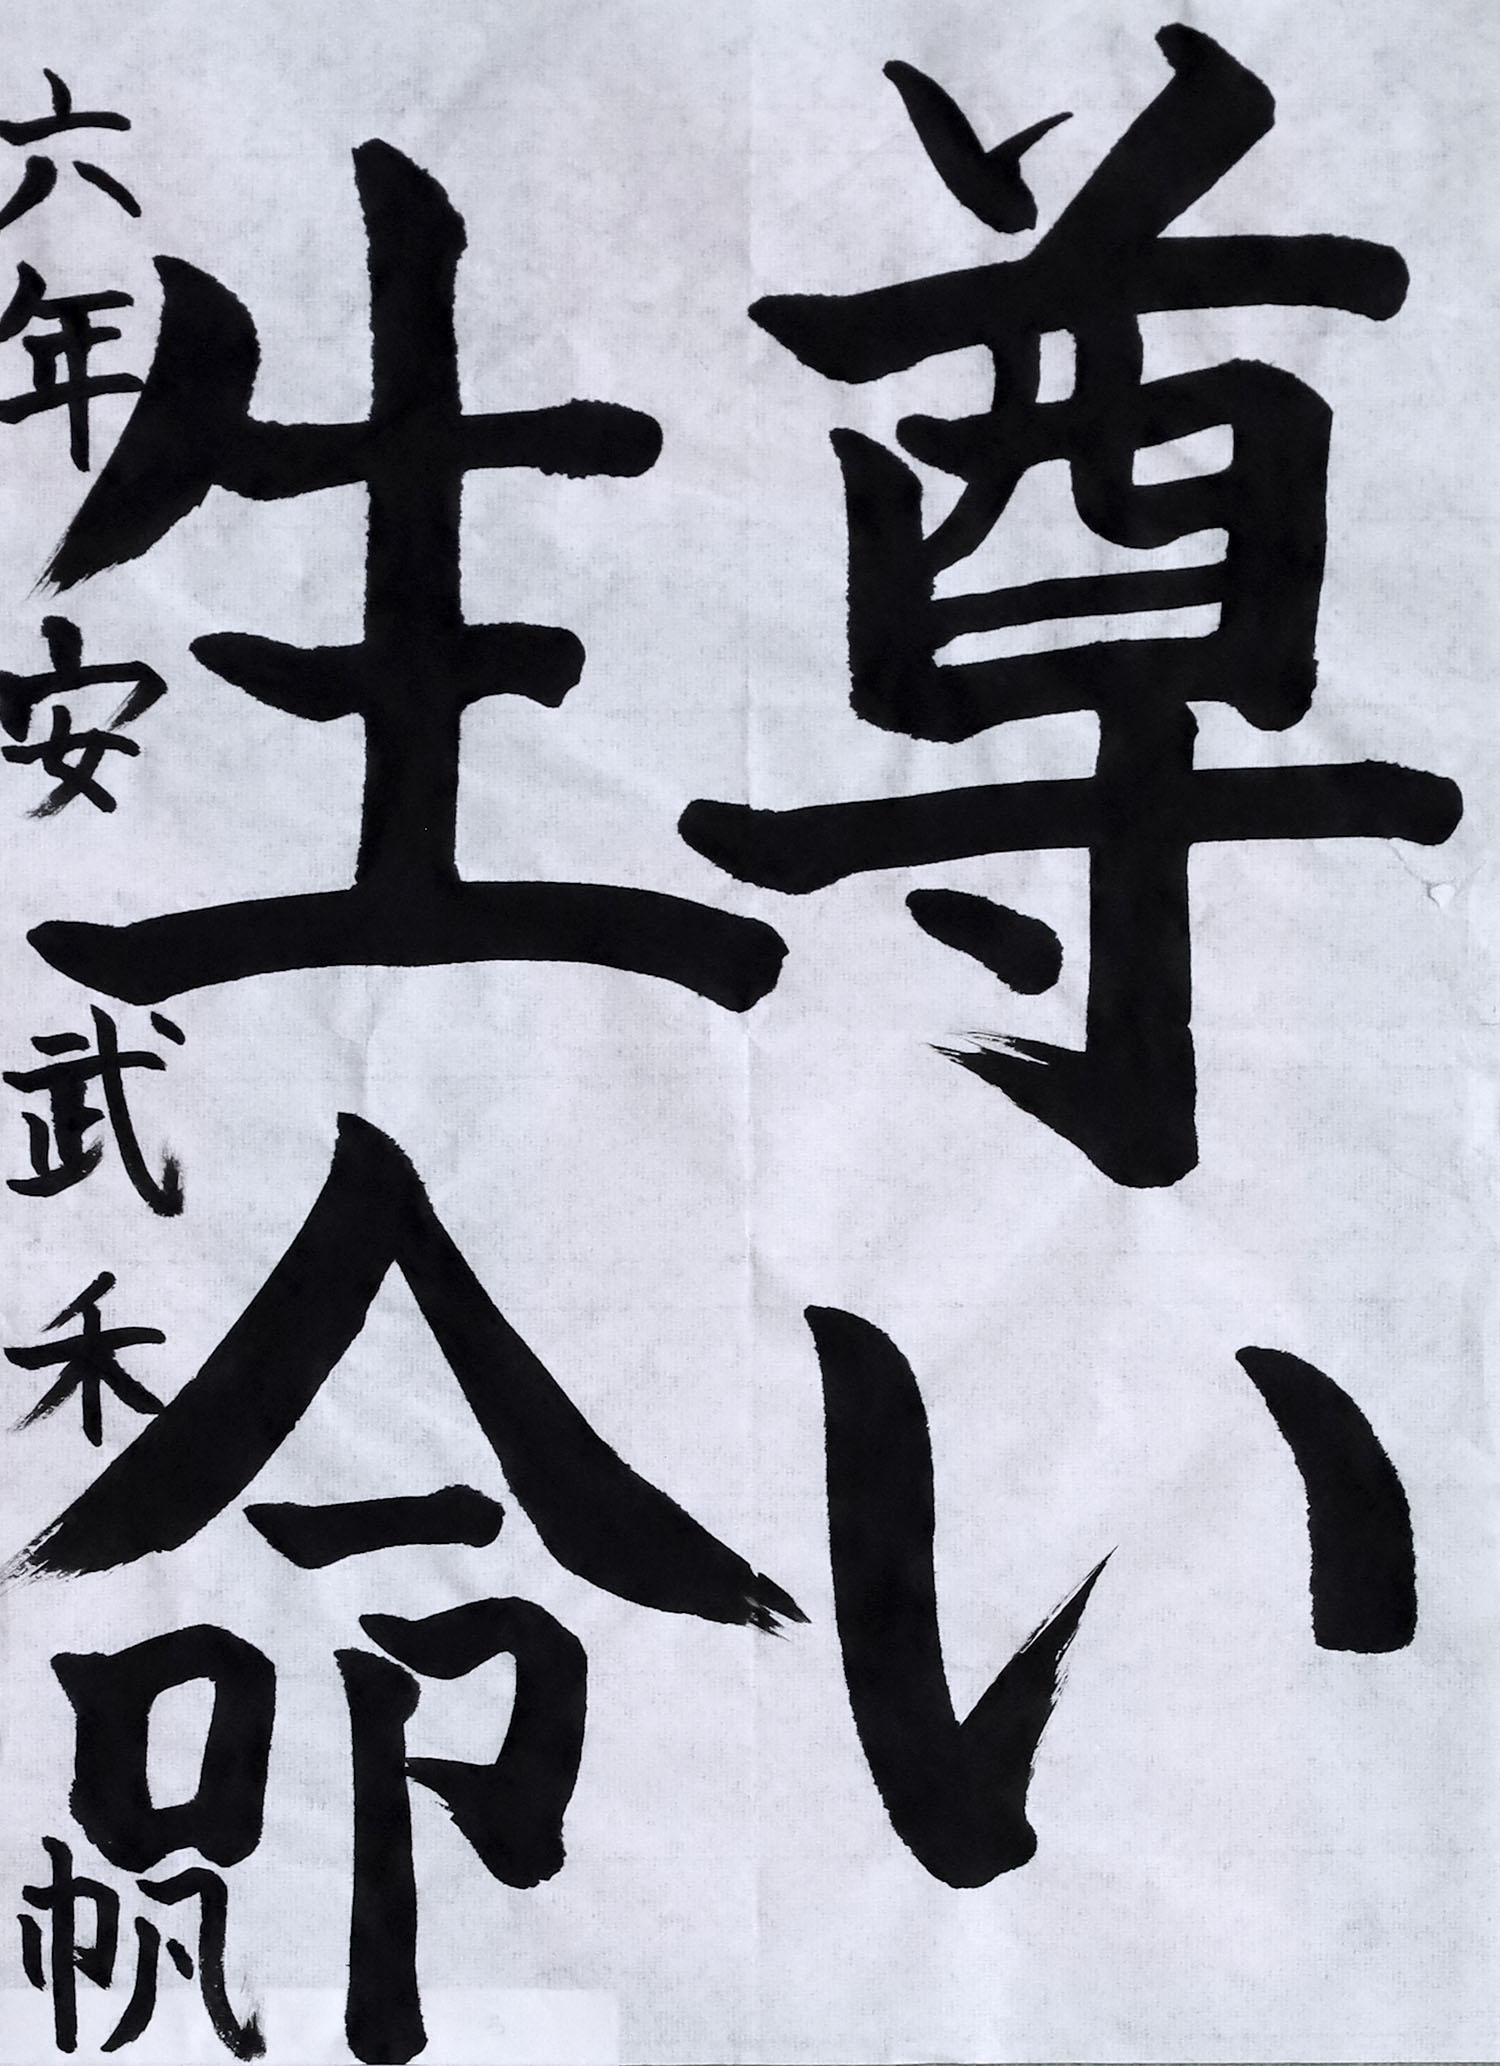 尊い
生命
六年安武禾帆